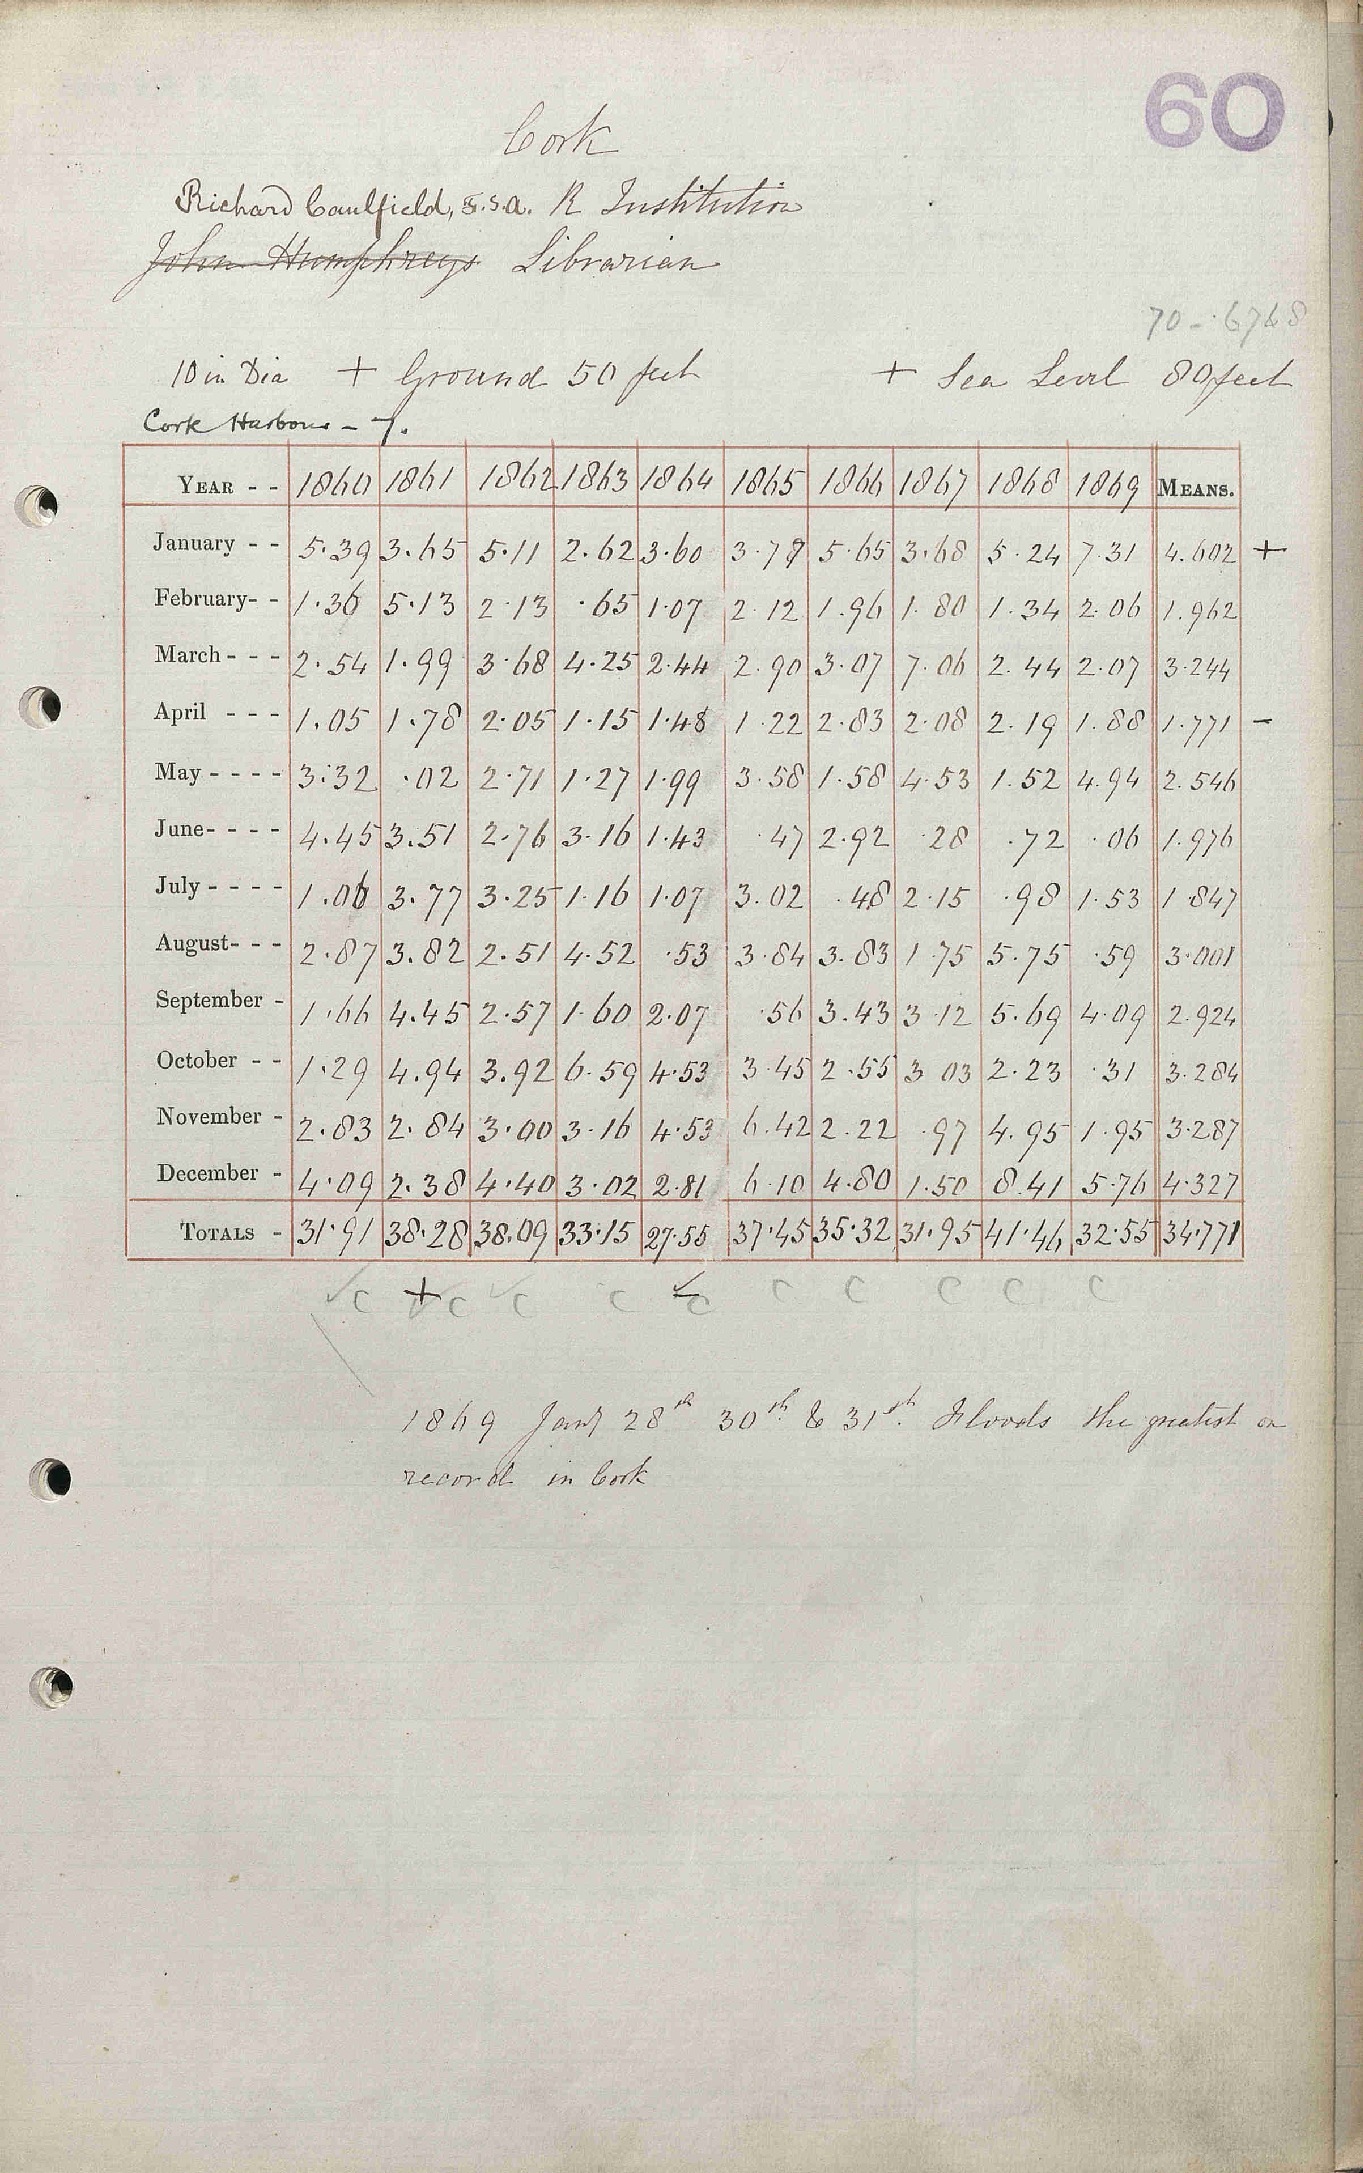 60
Cork
Richard Caulfield, F.S.A. R Institution
John Humphreys Librarian
70-.6768
10 in Dia + Ground 50 feet + Sea Level 80 feet
Cork Harbour - 7.
YEAR - - 1860 1861 1862 1863 1864 1865 1866 1867 1868 1869 MEANS.
January - - 5.39 3.65 5.11 2.62 3.60 3.77 5.65 3.68 5.24 7.31 4.602 +
February- - 1.36 5.13 2.13 .65 1.07 2.12 1.96 1.80 1.34 2.06 1.962
March - - - 2.54 1.99 3.68 4.25 2.44 2.90 3.07 7.06 2.44 2.07 3.244
April - - - 1.05 1.78 2.05 1.15 1.48 1.22 2.83 2.08 2.19 1.88 1.771 -
May - - - - 3.32 .02 2.71 1.27 1.99 3.58 1.58 4.53 1.52 4.94 2.546
June- - - - 4.45 3.51 2.76 3.16 1.43 .47 2.92 .28 .72 .06 1.976
July - - - - 1.06 3.77 3.25 1.16 1.07 3.02 .48 2.15 .98 1.53 1.847
August- - - 2.87 3.82 2.51 4.52 .53 3.84 3.83 1.75 5.75 .59 3.001
September - 1.66 4.45 2.57 1.60 2.07 .56 3.43 3.12 5.69 4.09 2.924
October - - 1.29 4.94 3.92 6.59 4.53 3.45 2.55 3 03 2.23 .31 3.284
November - 2.83 2.84 3.00 3.16 4.53 6.42 2.22 .97 4.95 1.95 3.287
December - 4.09 2.38 4.40 3.02 2.81 6.10 4.80 1.50 8.41 5.76 4.327
TOTALS - 31.91 38.28 38.09 33.15 27.55 37.45 35.32 31.95 41.46 32.55 34.771
✓c +✓c ✓c c ✓c c c c c c
1869 Jany 28th 30th & 31st. Floods the greatest on
record in Cork